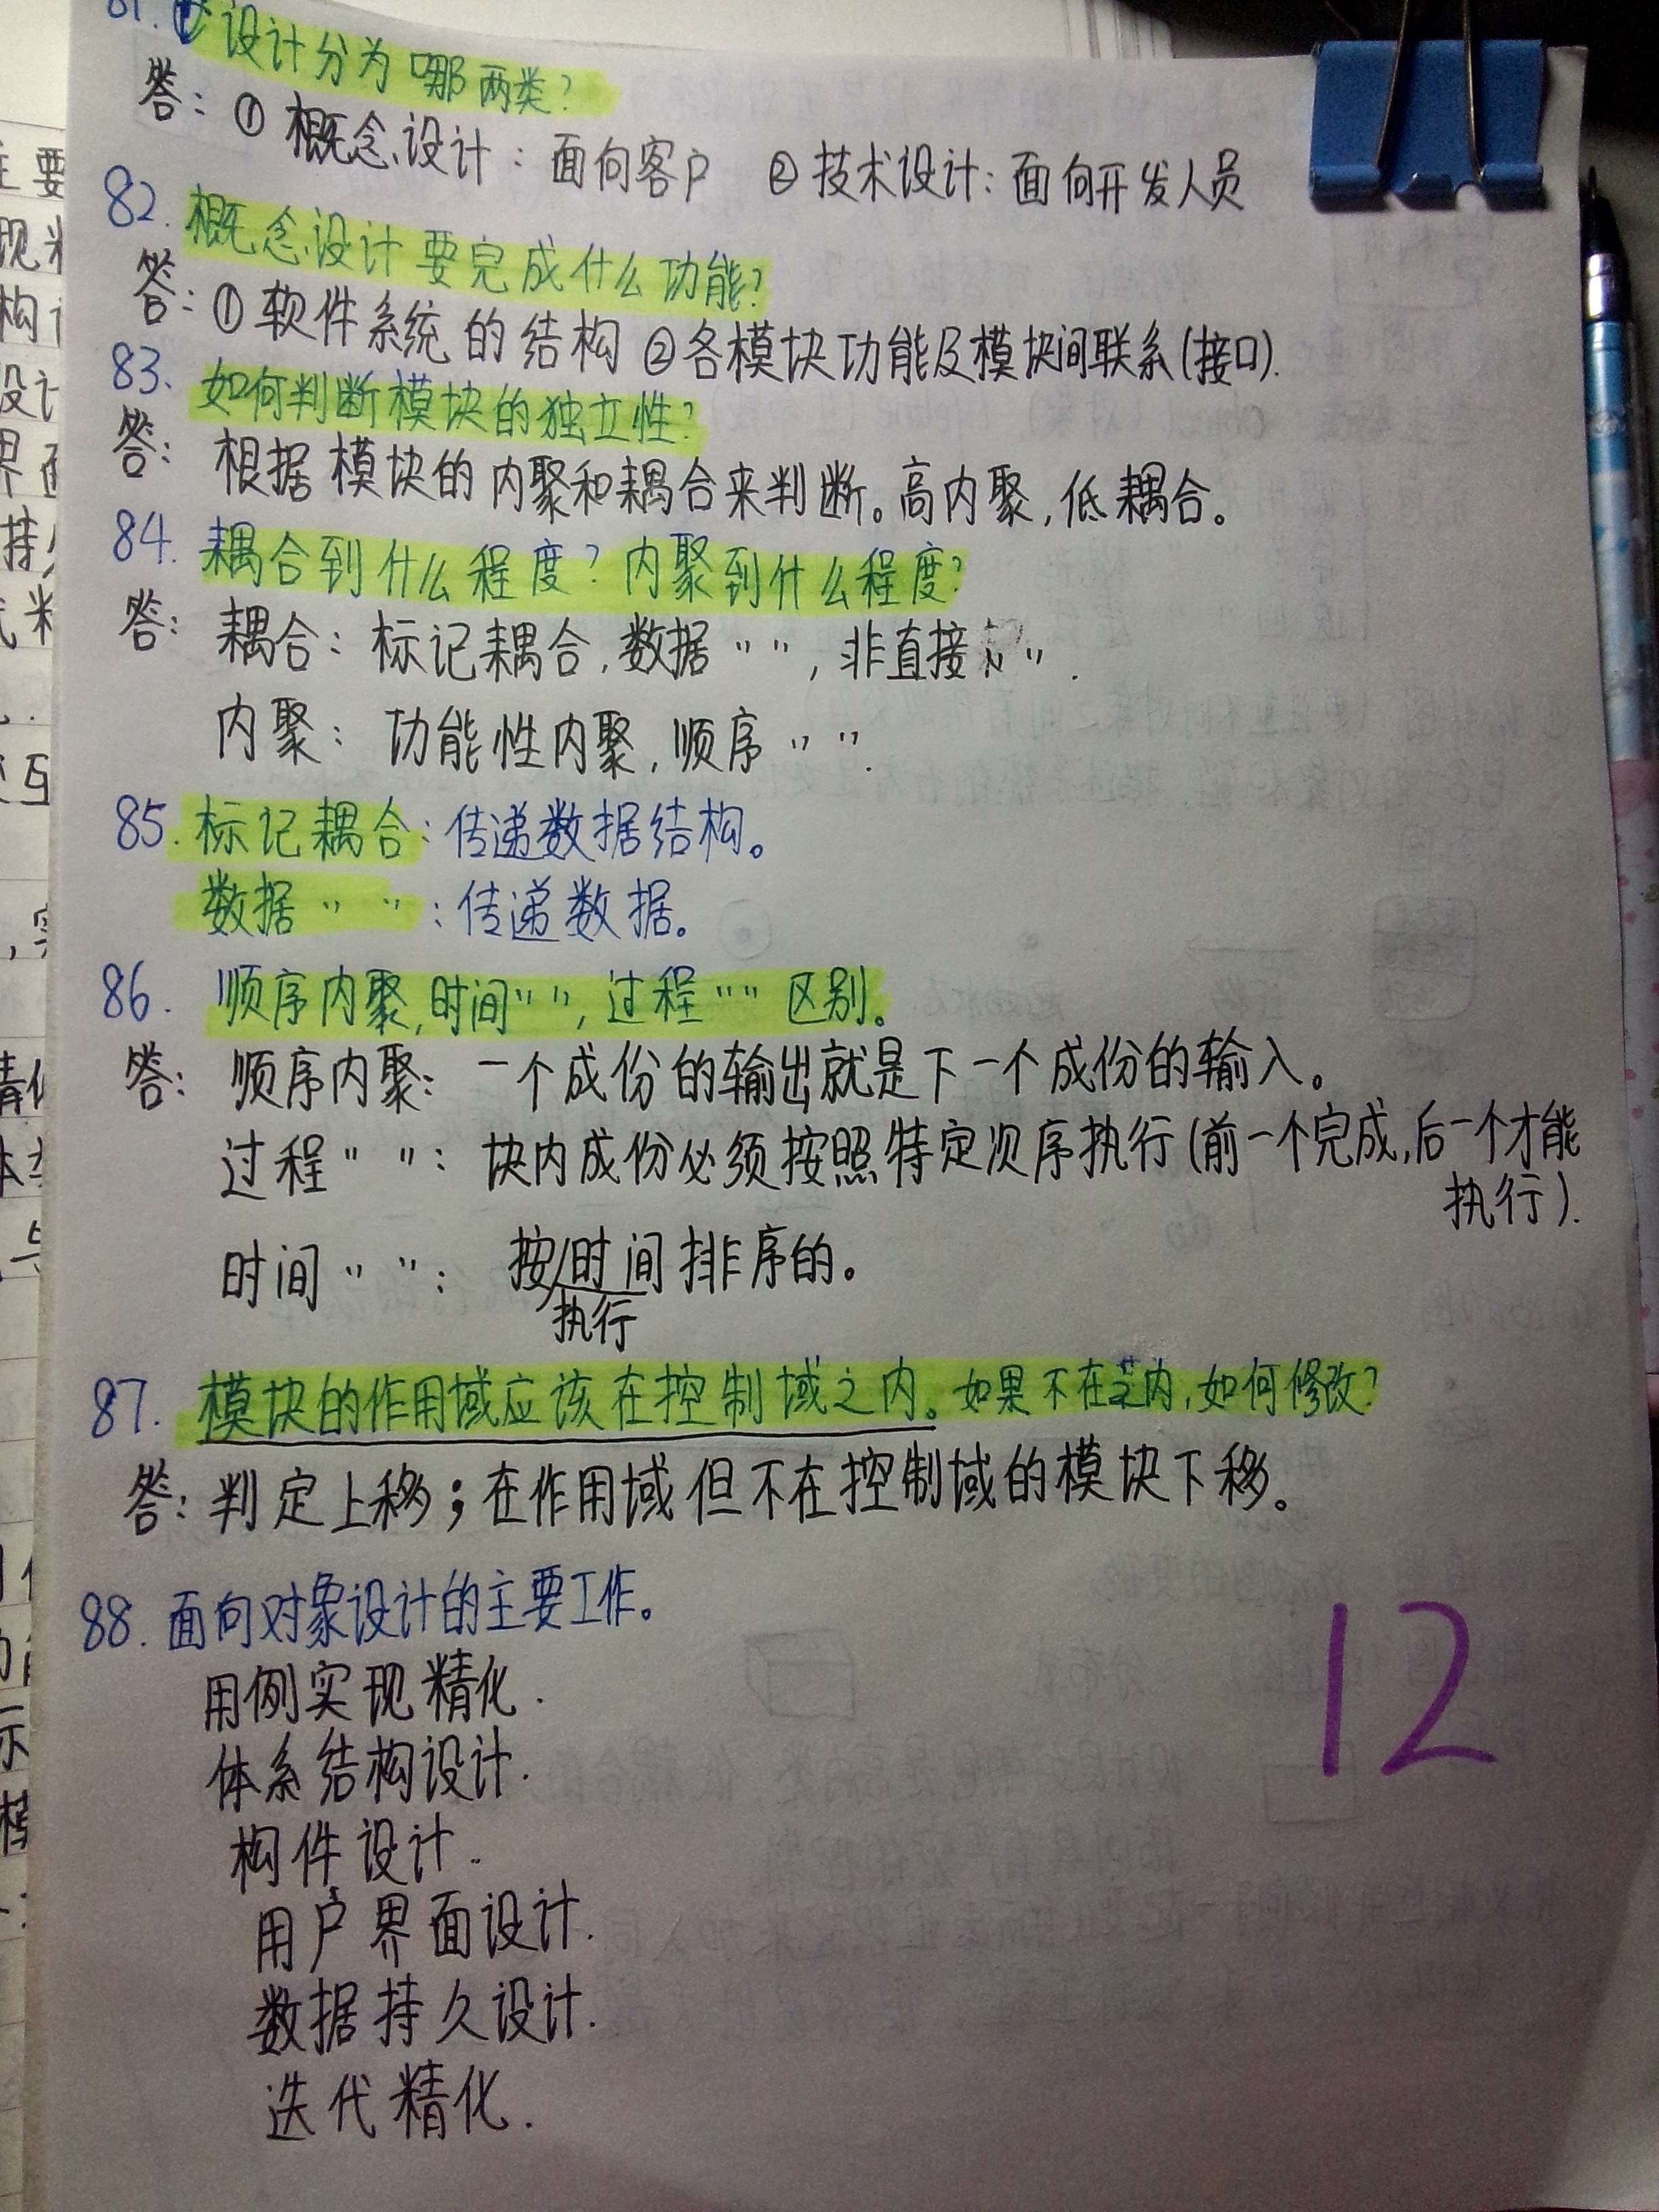 81. 设计分为哪两类?
答: ① 概念设计: 面向客户 ② 技术设计: 面向开发人员
82. 概念设计要完成什么功能?
答: ① 软件系统的结构 ② 各模块功能及模块间联系(接口).
83. 如何判断模块的独立性?
答: 根据模块的内聚和耦合来判断。高内聚, 低耦合。
84. 耦合到什么程度? 内聚到什么程度?
答: 耦合: 标记耦合, 数据 " ", 非直接 " ".
内聚: 功能性内聚, 顺序 " ".
85. 标记耦合: 传递数据结构。
数据 " ": 传递数据。
86. 顺序内聚, 时间 " ", 过程 " " 区别。
答: 顺序内聚: 一个成份的输出就是下一个成份的输入。
过程 " ": 块内成份必须按照特定次序执行(前一个完成, 后一个才能
执行).
时间 " ": 按时间排序的。
执行
87. 模块的作用域应该在控制域之内。如果不在之内, 如何修改?
答: 判定上移; 在作用域但不在控制域的模块下移。
88. 面向对象设计的主要工作。
用例实现精化.
体系结构设计.
构件设计.
用户界面设计.
数据持久设计.
迭代精化.
12